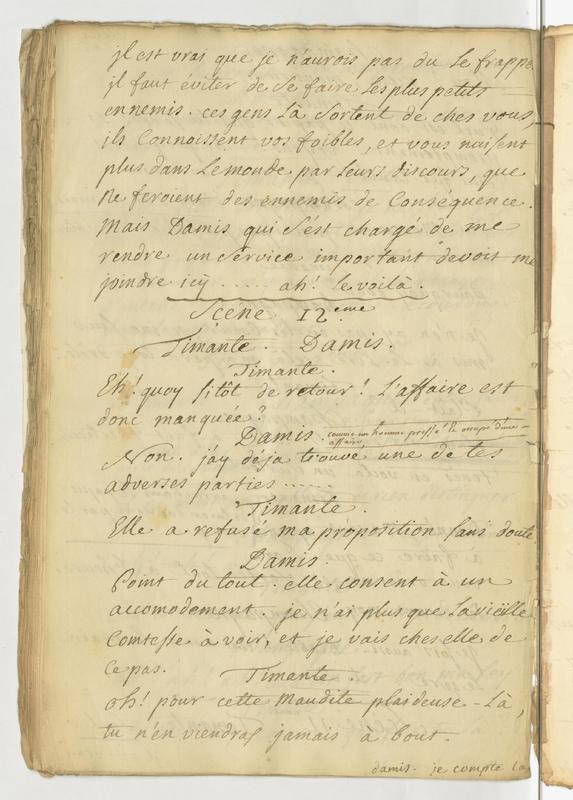 jl est vrai que je n'aurois pas du le frappe
jl faut éviter de se faire les plus petits
ennemis. ces gens là sortent de ches vous,
ils connoissent vos foibles, et vous nuisent
plus dans le monde par leurs discours, que
ne feroient des ennemis de Conséquence.
Mais Damis qui s'est chargé de me
rendre un service important devoit me
joindre icÿ ..... ah! le voilà.
Scéne 12eme
Timante. Damis.
Timante.
Eh! quoy sitôt de retour! L'affaire est
donc manquée?
Damis. comme un homme pressé & occupé d'une
affaire,
Non. j'ay déja trouvé une de tes
adverses parties ......
Timante.
Elle a refusé ma proposition sans doute
Damis.
Point du tout. elle consent à un
accomodement. je n'ai plus que la vieille
Comtesse à voir, et je vais ches elle de
ce pas. Timante.
oh! pour cette Maudite plaideuse - Là,
tu n'en viendras jamais à bout.
damis. je compte la